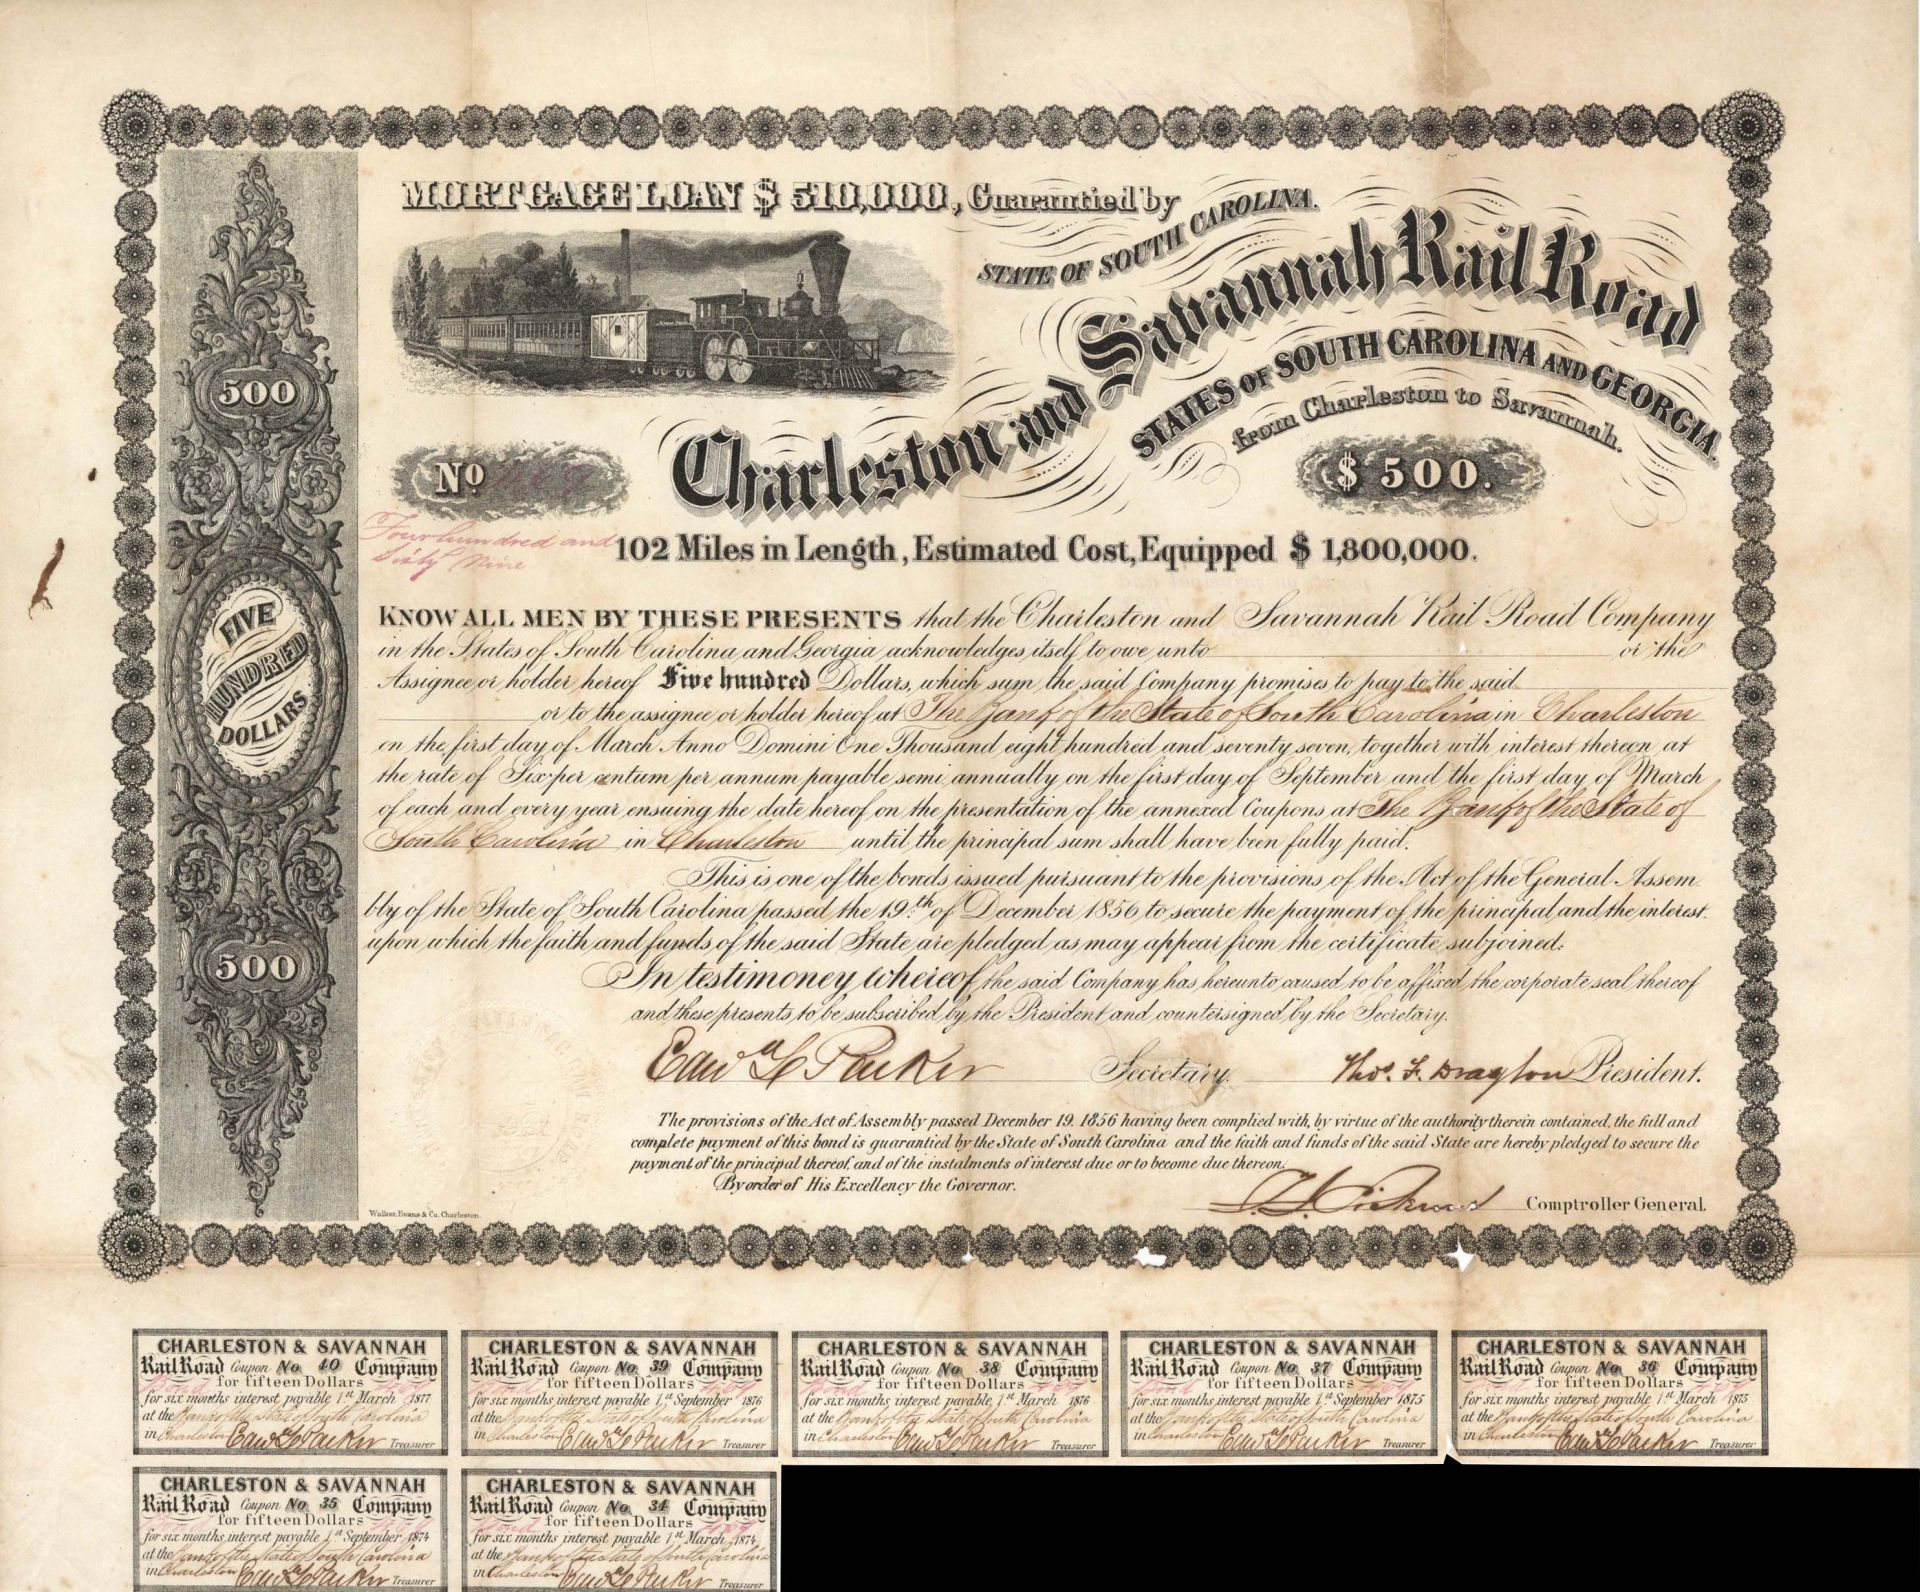 MORTGAGE LOAN $ 510,000, Guarantied by
STATE OF SOUTH CAROLINA.
Charleston and Savannah Rail Road
STATES OF SOUTH CAROLINA AND GEORGIA.
from Charleston to Savannah.
500
No 469
$ 500.
Four hundred and
Sixty Nine
102 Miles in Length, Estimated Cost, Equipped $ 1,800,000.
FIVE
HUNDRED
DOLLARS
KNOW ALL MEN BY THESE PRESENTS that the Charleston and Savannah Rail Road Company
in the States of South Carolina and Georgia acknowledges itself to owe unto or the
Assignee or holder hereof Five hundred Dollars, which sum the said Company promises to pay to the said
or to the assignee or holder hereof at The Bank of the State of South Carolina in Charleston
on the first day of March Anno Domini One Thousand eight hundred and seventy seven, together with interest thereon at
the rate of Six per centum per annum payable semi annually on the first day of September and the first day of March
of each and every year ensuing the date hereof on the presentation of the annexed Coupons at The Bank of the State of
South Carolina in Charleston until the principal sum shall have been fully paid.
This is one of the bonds issued pursuant to the provisions of the Act of the General Assem
bly of the State of South Carolina passed the 19th of December 1856 to secure the payment of the principal and the interest
upon which the faith and funds of the said State are pledged as may appear from the certificate subjoined:
500
In testimoney whereof the said Company has hereunto caused to be affixed the corporate seal thereof
and these presents to be subscribed by the President and countersigned by the Secretary.
Edwd L Parker Secretary. Thos. F. Drayton President.
The provisions of the Act of Assembly passed December 19. 1856 having been complied with, by virtue of the authority therein contained, the full and
complete payment of this bond is guarantied by the State of South Carolina and the faith and funds of the said State are hereby pledged to secure the
payment of the principal thereof, and of the instalments of interest due or to become due thereon.
By order of His Excellency the Governor.
Comptroller General.
Walker, Evans & Co. Charleston.
CHARLESTON & SAVANNAH
Rail Road Coupon No. 40 Company
for fifteen Dollars
for six months interest payable 1st March 1877
at the Bank of the State of South Carolina
in Charleston Edwd L Parker Treasurer
CHARLESTON & SAVANNAH
Rail Road Coupon No. 39 Company
for fifteen Dollars
for six months interest payable 1st September 1876
at the Bank of the State of South Carolina
in Charleston Edwd L Parker Treasurer
CHARLESTON & SAVANNAH
Rail Road Coupon No. 38 Company
for fifteen Dollars
for six months interest payable 1st March 1876
at the Bank of the State of South Carolina
in Charleston Edwd L Parker Treasurer
CHARLESTON & SAVANNAH
Rail Road Coupon No. 37 Company
for fifteen Dollars
for six months interest payable 1st September 1875
at the Bank of the State of South Carolina
in Charleston Edwd L Parker Treasurer
CHARLESTON & SAVANNAH
Rail Road Coupon No. 36 Company
for fifteen Dollars
for six months interest payable 1st March 1875
at the Bank of the State of South Carolina
in Charleston Edwd L Parker Treasurer
CHARLESTON & SAVANNAH
Rail Road Coupon No. 35 Company
for fifteen Dollars
for six months interest payable 1st September 1874
at the Bank of the State of South Carolina
in Charleston Edwd L Parker Treasurer
CHARLESTON & SAVANNAH
Rail Road Coupon No. 34 Company
for fifteen Dollars
for six months interest payable 1st March 1874
at the Bank of the State of South Carolina
in Charleston Edwd L Parker Treasurer